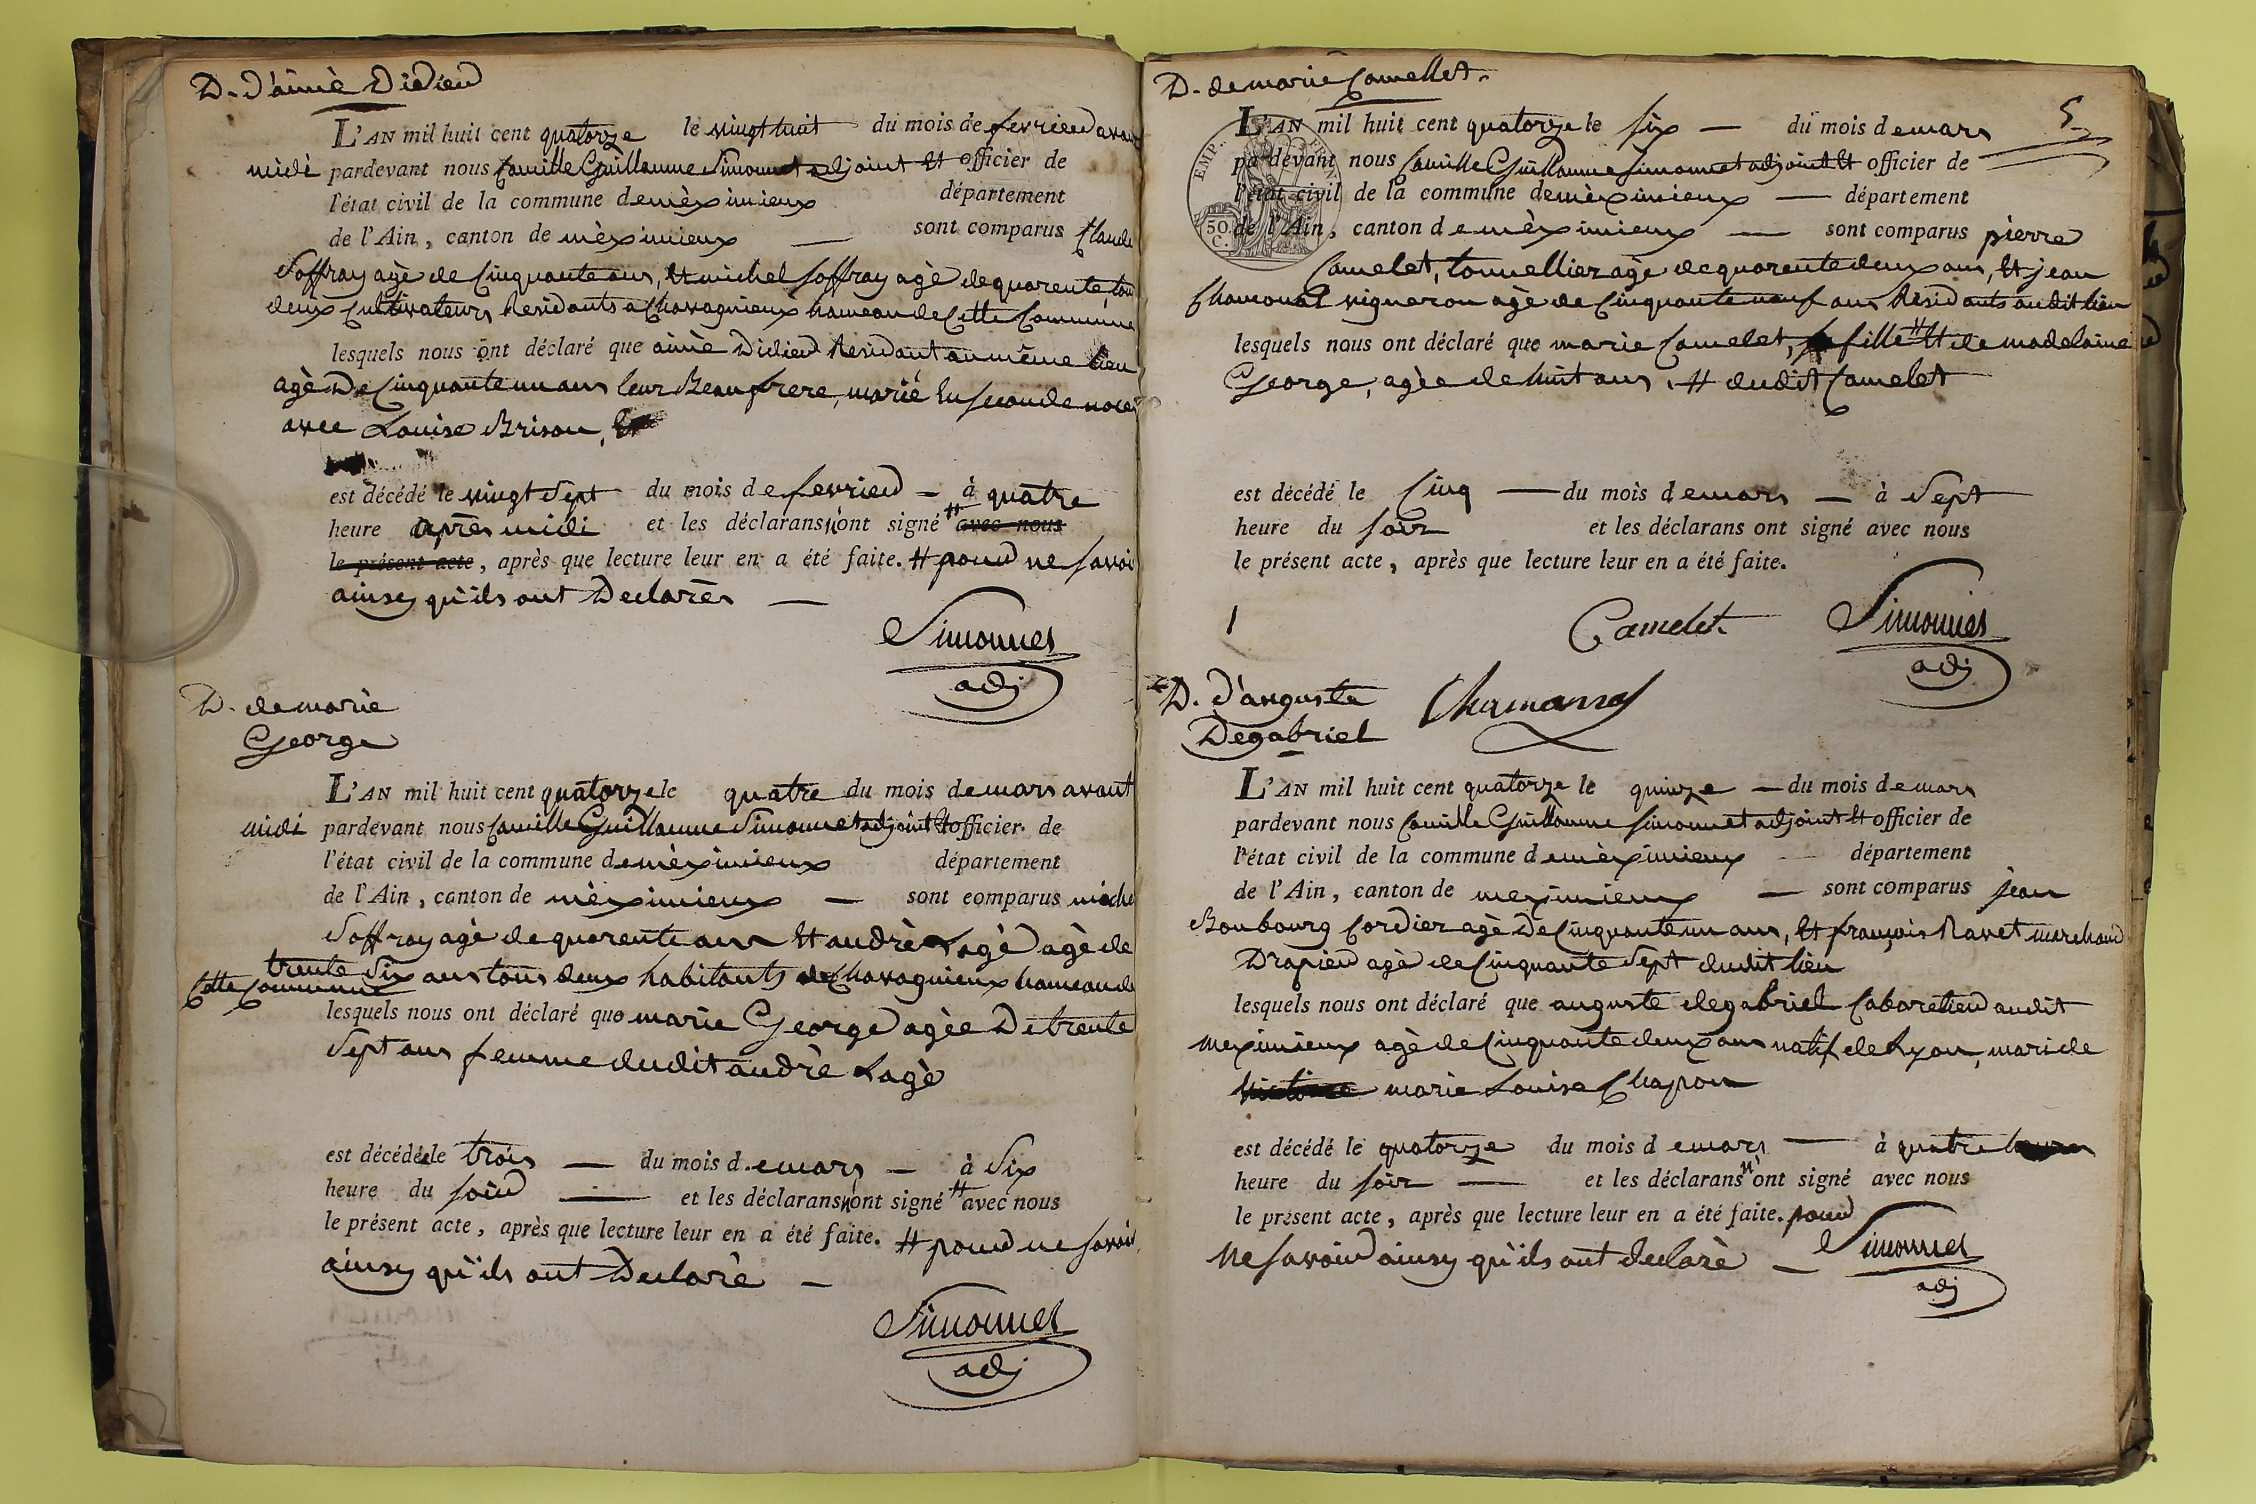 D. d'aimè Didieu
L'AN mil huit cent quatorze le vingt huit du mois de fevrieu avant
midi pardevant nous Camille Guillaume Simonnet adjoint Et officier de
l'état civil de la commune de mèximieux département
de l'Ain, canton de mèximieux — sont comparus Claude
Soffray agè de Cinquante ans, Et michel Soffray agè de quarente, tou
deux Cultivateurs Residants a Chavagnieux hameau de Cette Commune
lesquels nous ont déclaré que aimè Didieu Residant au même lieu
agè De Cinquante un ans leur Beaufrere, marié En seconde noces
avec Louise Brison,
est décédé le vingt Sept du mois de fevrieu — à quatre
heure après midi et les déclarans n'ont signé # avec nous
le présent acte, après que lecture leur en a été faite. # poud ne savoi
ainsy qu'ils ont Declarès —
Simonnet
adj
D. de marie
George
L'AN mil huit cent quatorze le quatre du mois de mars avant
midi pardevant nous Camille Guillaume Simonnet adjoint Et officier de
l'état civil de la commune de mèximieux département
de l'Ain, canton de mèximieux — sont comparus miche
Soffray agè de quarente ans Et andrè Lagè agè de
trente Six ans tous deux habitants de Chavagnieux hameau de
Cette Commune
lesquels nous ont déclaré que marie George agèe De trente
Sept ans femme dudit andrè Lagè
est décédée le trois — du mois de mars — à Six
heure du soiu — et les déclarans n'ont signé # avec nous
le présent acte, après que lecture leur en a été faite. # poud ne savoir
ainsy qu'ils ont Declarè —
Simonnet
adj
D. de marie Camellet.
5
L'AN mil huit cent quatorze le six — du mois de mars
pardevant nous Camille Guillaume Simonnet adjoint Et officier de
l'état civil de la commune de mèximieux — département
de l'Ain, canton de mèximieux — sont comparus pierre
EMP.
50
C.
Camelet, tonnellier agè de quarente deux ans, Et jean
Chamonal vigneron agè de Cinquante neuf ans Residants audit lieu
lesquels nous ont déclaré que marie Camelet, fille # Et de madelaine
George, agèe de huit ans. # dudit Camelet
est décédé le Cinq — du mois de mars — à Sept
heure du soir et les déclarans ont signé avec nous
le présent acte, après que lecture leur en a été faite.
Camelet. Simonnet
adj
D. d'auguste
Degabriel
L'AN mil huit cent quatorze le quinze — du mois de mars
pardevant nous Camille Guillaume Simonnet adjoint Et officier de
l'état civil de la commune de mèximieux — département
de l'Ain, canton de meximieux — sont comparus jean
Bonbourg Cordier agè De Cinquante un ans, Et françois Ravet marchand
Drapieu agè de Cinquante Sept dudit lieu
lesquels nous ont déclaré que auguste degabriel Cabaretieu audit
meximieux agè de Cinquante deux ans natif de Lyon, mari de
marie Louise Chapon
est décédé le quatorze du mois de mars — à quatre
heure du soir — et les déclarans n'ont signé avec nous
le présent acte, après que lecture leur en a été faite. poud
Ne savoiu ainsy qu'ils ont declarè —
Simonnet
adj